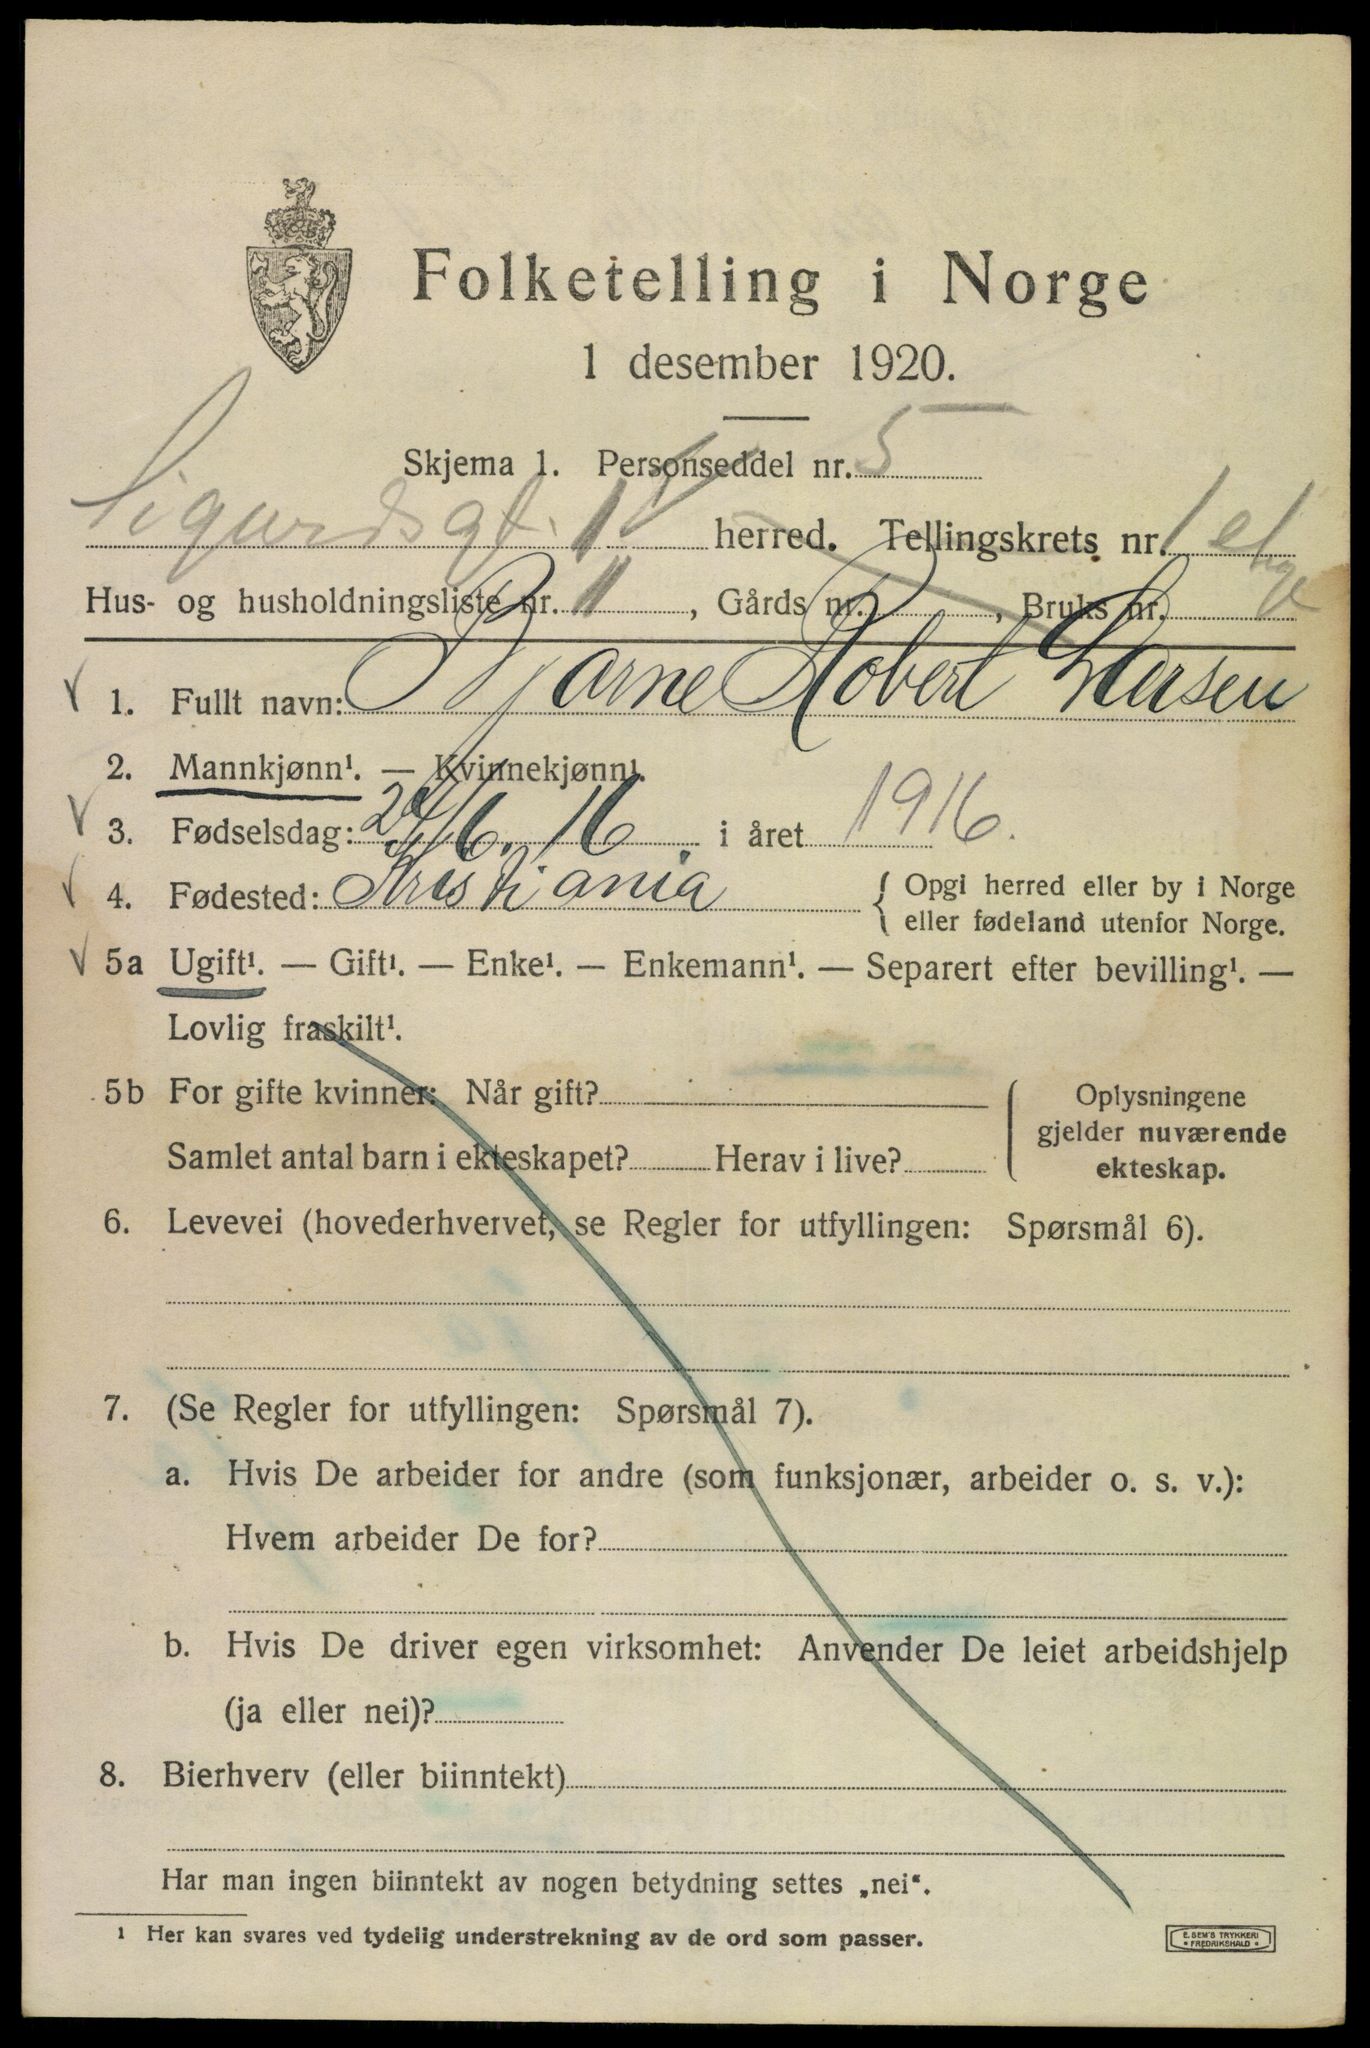 Folketelling i Norge
1 desember 1920.
Skjema 1. Personseddel nr. 5
Sigurdsgt. 14 herred. Tellingskrets nr. 1 etg
Hus- og husholdningsliste nr. 11, Gårds nr. , Bruks nr.
1. Fullt navn: Bjarne Robert Larsen
2. Mannkjønn¹. — Kvinnekjønn¹.
3. Fødselsdag: 24/6. 16. i året 1916.
4. Fødested: Kristiania { Opgi herred eller by i Norge
eller fødeland utenfor Norge.
5a Ugift¹. — Gift¹. — Enke¹. — Enkemann¹. — Separert efter bevilling¹. —
Lovlig fraskilt¹.
5b For gifte kvinner: Når gift? Oplysningene
gjelder nuværende
Samlet antal barn i ekteskapet? Herav i live? ekteskap.
6. Levevei (hovederhvervet, se Regler for utfyllingen: Spørsmål 6).
7. (Se Regler for utfyllingen: Spørsmål 7).
a. Hvis De arbeider for andre (som funksjonær, arbeider o. s. v.):
Hvem arbeider De for?
b. Hvis De driver egen virksomhet: Anvender De leiet arbeidshjelp
(ja eller nei)?
8. Bierhverv (eller biinntekt)
Har man ingen biinntekt av nogen betydning settes „nei“.
¹ Her kan svares ved tydelig understrekning av de ord som passer.
E. SEM'S TRYKKERI
• FREDRIKSHALD •